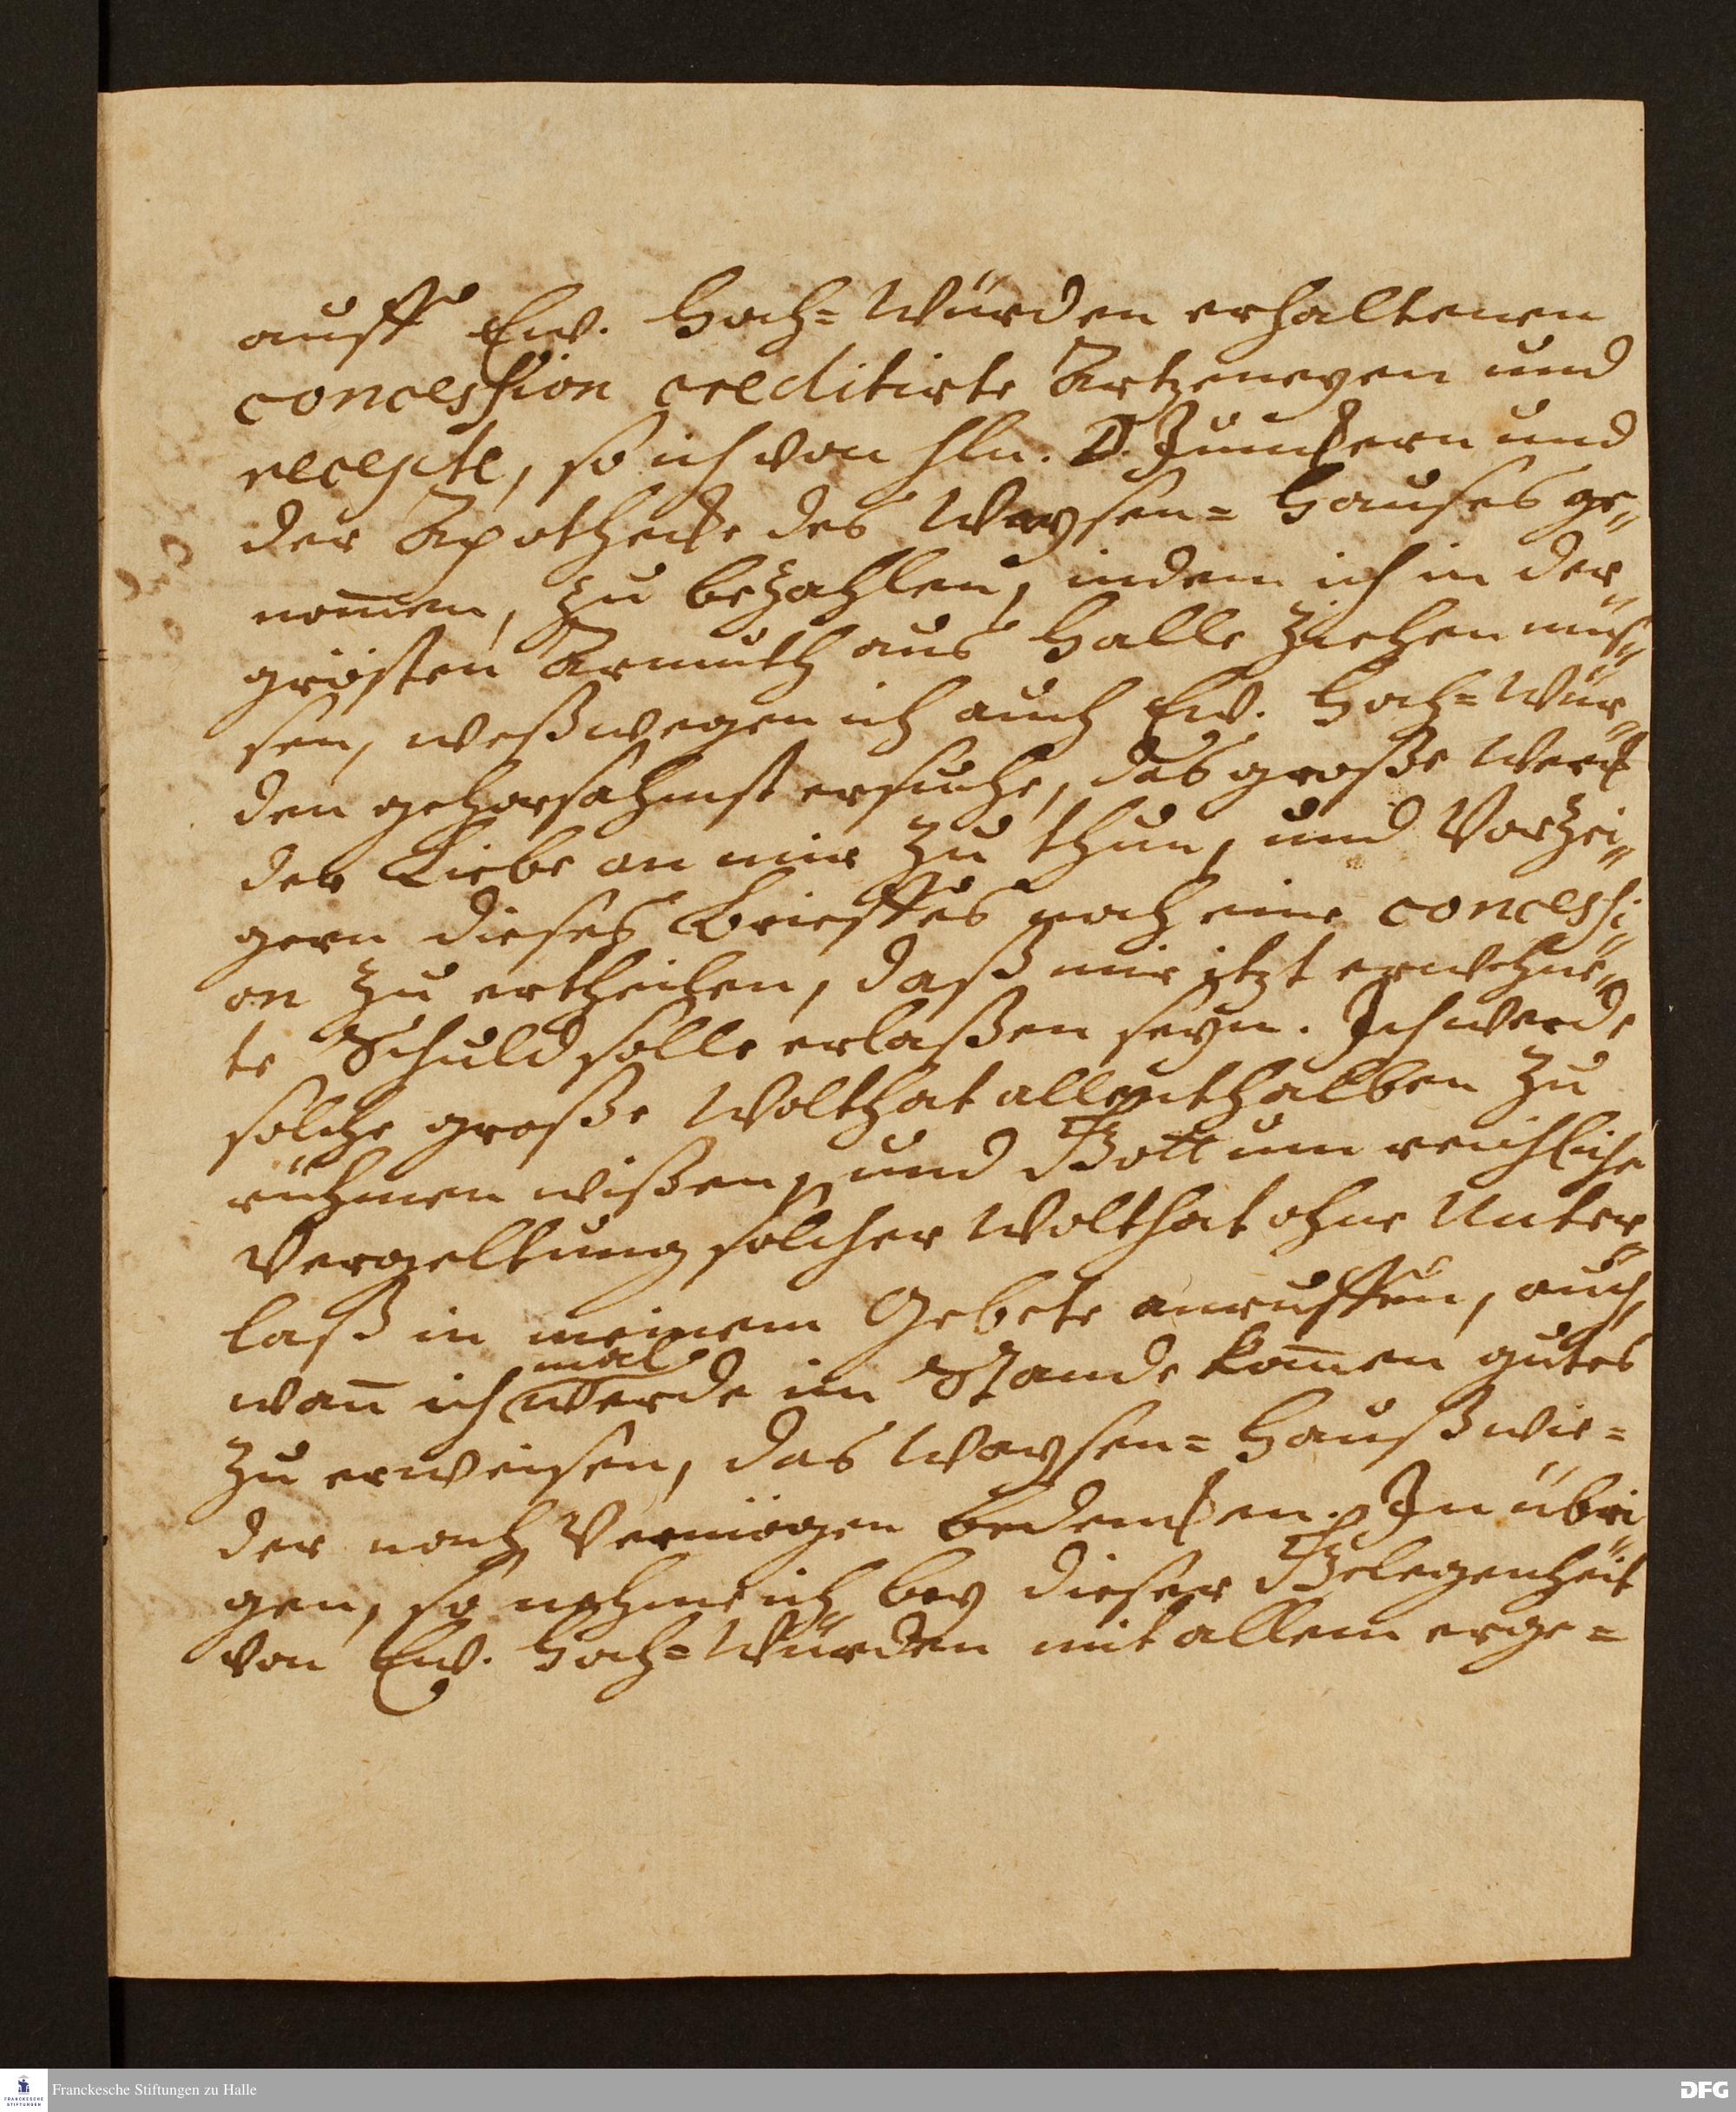 auff Ew. Hoch=Würden erhaltenen
concession creditirte Artzeneyen und
recepte, so ich von Hln. D. Junckern und
der Apothecke des Waysen=Hauses ge„
nom̄en, zu bezahlen, indem ich in der„
grösten Armuth aus Halle ziehen müs„
sen, weßwegen ich auch Ew. Hoch=Wür„
den gehorsahmst ersuche, das große Werck
der Liebe an mir zu thun, und Vorzei„
gern dieses Brieffes noch eine concessi„
on zu ertheilen, daß mir itzt erwehn„
te Schuld solle erlaßen seyn. Ich werde
solche große Wolthat allenthalben zu
rühmen wißen, und Gott um reichliche
Vergeltung solcher Wolthat ohne Unter„
laß in meinem Gebete anruffen, auch,
wan̄ ich mal werde im Stande kom̄en gutes
zu erweisen, das Waysen=Hauß wie=
der nach Vermögen bedencken. In übri„
gen, so nehme ich bey dieser Gelegenheit
von Ew. Hoch=Würden mit allem erge=
Franckesche Stiftungen zu Halle
FRANCKESCHE STIFTUNGEN
DFG